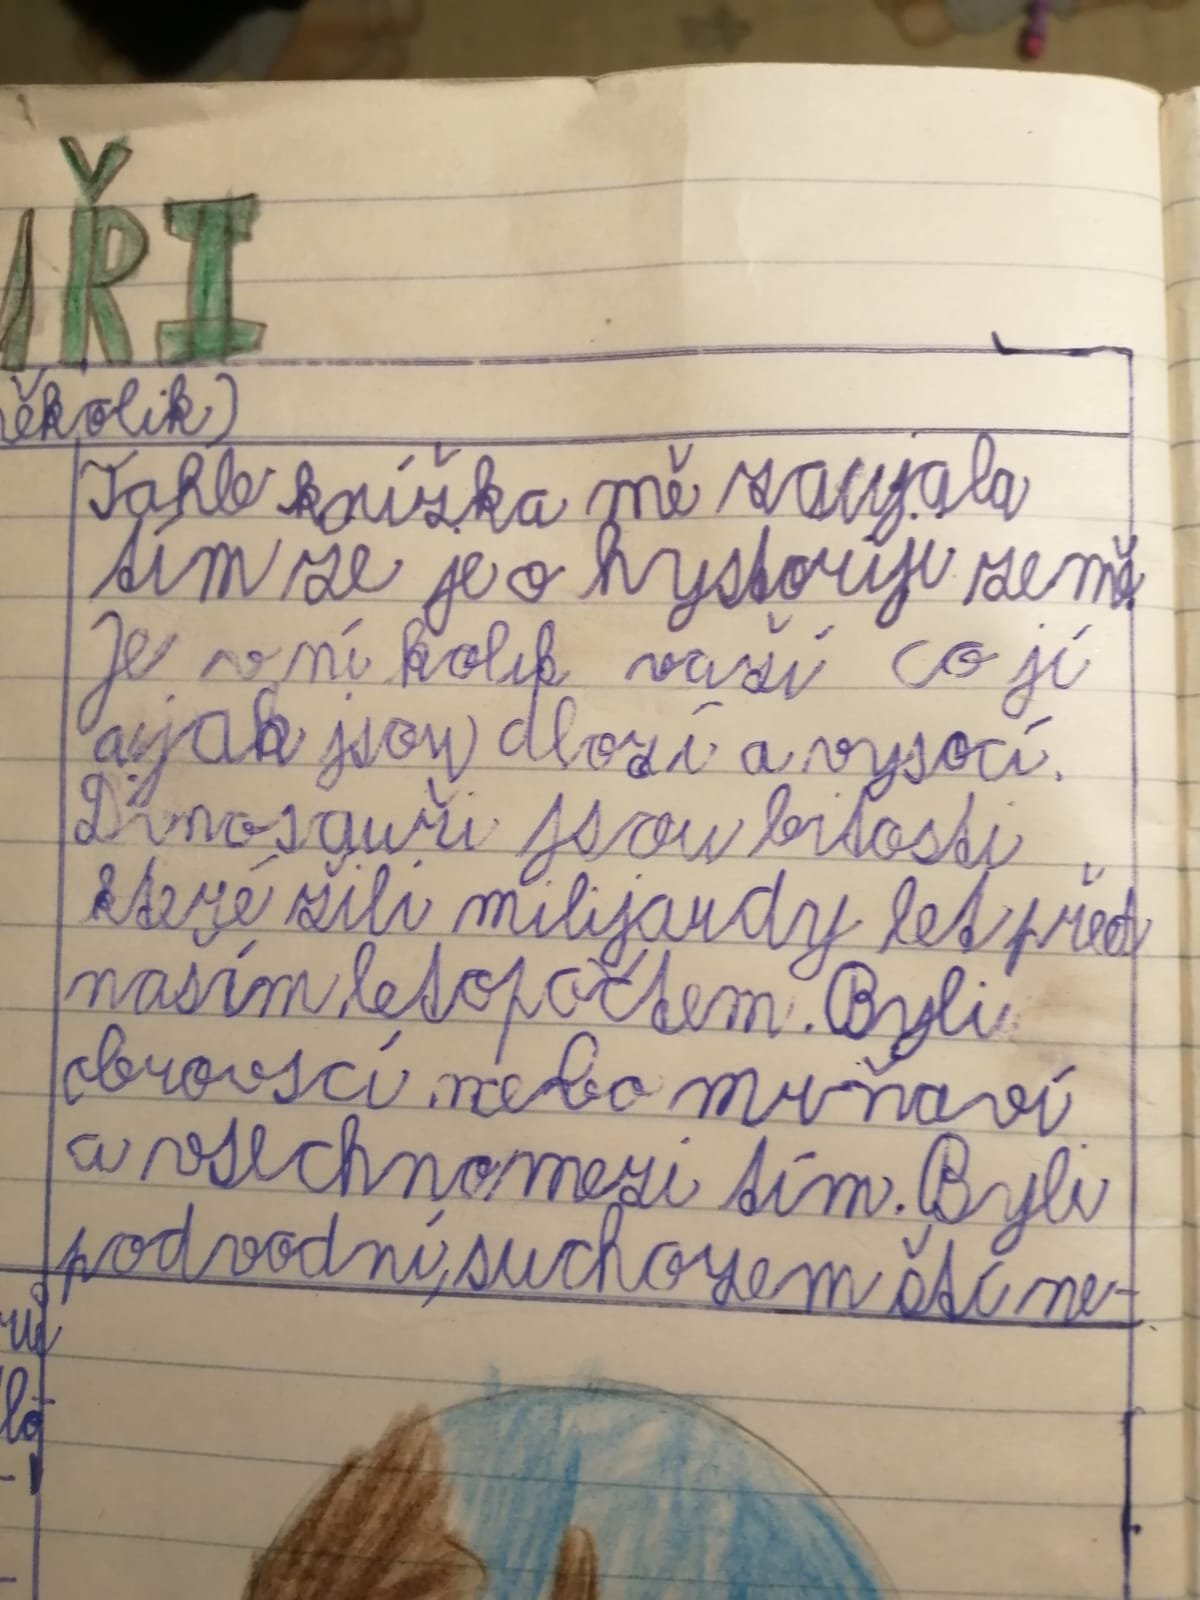 ŘI
ěkolik)
Tahle knížka mě zaujala
tím ze je o hystoriji země
Je v ní kolik važí co jí
a jak jsou dlozí a vysocí.
Dinosauři jsou bitosti
které žili milijardy let před
nasím letopočtem. Byli
obrovscí nebo mrňaví
a vsechno mezi tím. Byli
podvodní, suchozemští ne-